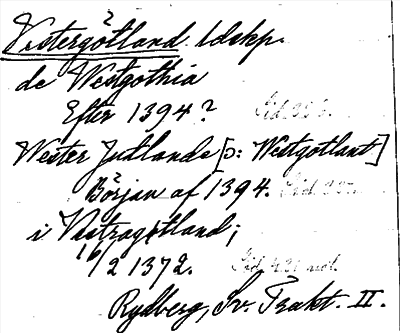 Västergötland. ldskp.
de Westgothia
Efter 1394?
Wester Jutlande [ɔ: Westgotlant]
Början af 1394.
i Væstragøtland;
16/2 1372.
Rydberg, Sv. Trakt. II.